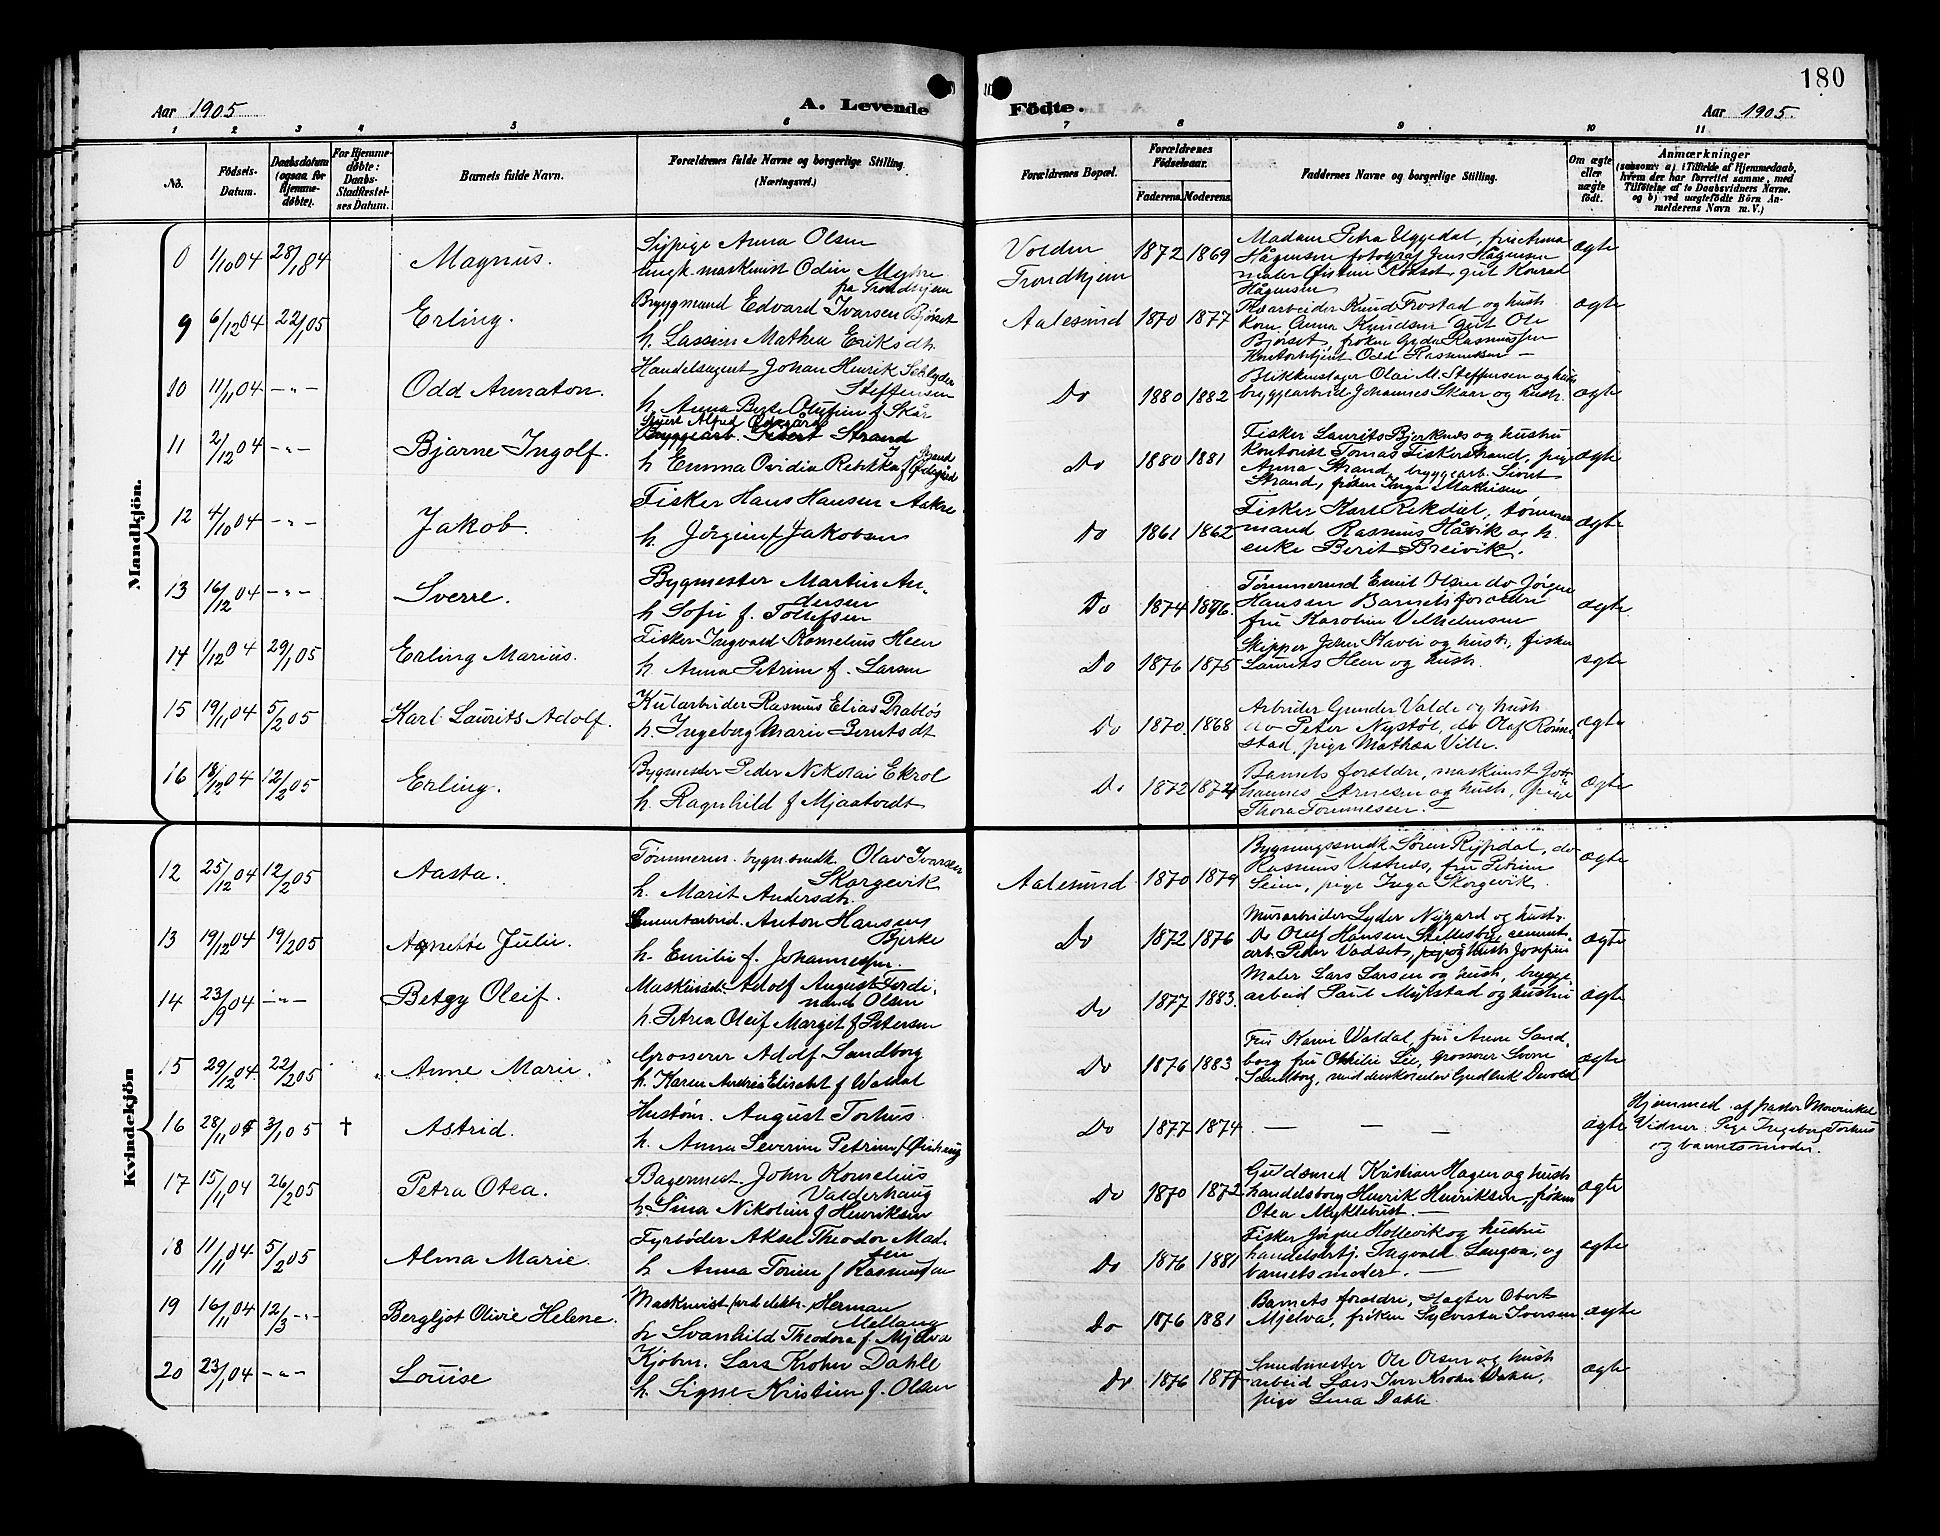 180
Aar 1905
A. Levende
Födte.
Aar 1905.
1 2 3 4 5 6 7 8 9 10 11
No.
Fødsels-Datum.
Daabsdatum (ogsaa for Hjemme-døbte).
For Hjemme-døbte: Daabs-Stadfæstel-ses Datum.
Barnets fulde Navn.
Forældrenes fulde Navne og borgerlige Stilling. (Næringsvei.)
Forældrenes Bopæl.
Forældrenes Fødselsaar.
Faderens. Moderens.
Faddernes Navne og borgerlige Stilling.
Om ægte eller uægte født.
Anmærkninger
(saasom: a) i Tilfælde af Hjemmedaab, hvem der har forrettet samme, med Tilføielse af to Daabsvidners Navne. og b) ved uægtefødte Börn An-melderens Navn m. V.)
Mandkjön.
0 1/10 04 28/1 84 Magnus.
Sypige Anna Olsen
Ungk. maskinist Odin Myhre
fra Trondhjem
Volden
Trondhjem
1872 1869
Madam Petra Uggedal, fru Anna
Hågensen fotograf Jens Hågensen
maler Øistein Rødset, gut Konrad
Hågensen
ægte
9 6/12 04 22/1 05 Erling.
Bryggmand Edvard Ivarsen Bjørset
h. Lassine Mathea Eriksdtr.
Aalesund 1870 1877
arbeider Knud Frostad og hustr.
Anna Knudsen gut Ole
Bjørset, frøken Gyda Rasmussen
Kontorbetjent Odd Rasmussen —
ægte
10 11/11 04 — „ — Odd Annaton.
Handelsagent Johan Henrik Schlyder
Steffensen
h. Anna Berte Olufine f. Skår
Do 1880 1882
Blikkenslager Olai M. Steffensen og hustr
bryggearbeid. Johannes Skaar og hustr.
ægte
11 2/12 04 — „ — Bjarne Ingolf.
Sivert Alfred Ødegård
Bryggearb. Sivert Strand
h. Emma Ovidia Rebekka f. Ødegård
Strand
Do 1880 1881
Fisker Laurits Bjerknes og hustru
Kontorist Tomas Fiskerstrand, pige
Anna Strand, bryggearb. Sivert
Strand, frøken Inga Mathisen
ægte
12 4/10 04 — „ — Jakob.
Fisker Hans Hansen Aakre
h. Jörgine f. Jakobsen
Do 1861 1862
Fisker Karl Rekdal, tømmer
mand Rasmus Håvik og h.
enke Berit Breivik.
ægte
13 16/12 04 — „ — Sverre.
Bygmester Martin An-
dersen
h. Sofie f. Tollefsen
Do 1874 1876.
Tømmermd Emil Olsen do Jørgen
Hansen Barnets forældre
fru Karoline Vilhelmsen
ægte
14 1/12 04 29/1 05 Erling Marius.
Fisker Ingvald Kornelius Heen
h. Anna Petrine f. Larsen
Do 1876 1875
Skipper John Havei og hustr., fisker
Laurits Heen og hustr.
ægte
15 19/11 04 5/2 05 Karl Laurits Adolf.
Kularbeider Rasmus Elias Drabløs
h. Ingeborg Marie Berntsdt
Do 1870 1868
Arbeider Gunder Valde og hustr
do Peter Nystøl, do Olaf Rønne
stad, pige Mathea Ville.
ægte
16 18/12 04 12/2 05 Erling.
Bygmester Peder Nikolai Ekrol
h. Ragnhild f. Mjaatvedt
Do 1872 1874
Barnets forældre, maskinist Jo-
hannes Arnesen og hustr., pige
Thora Tommesen. —
ægte
Kvindekjön
12 25/12 04 12/2 05 Aasta.
Tømmerm. bygn.snedk. Olav Ivarsen
Skorgevik
h. Marit Andersdtr.
Aalesund 1870 1879
Bygningssnedk Sören Rypdal, do
Rasmus Vestnes, fru Petrine
Seim, pige Inga Skorgevik.
ægte
13 19/12 04 19/2 05 Agnette Julie.
Cementarbeid. Anton Hansen
Bjerke
h. Emilie f. Johannessen.
Do 1872 1876
Murarbeider Lyder Nygard og hustr.
Do Oluf Hansen Stillesby, cement-
arb. Peder Vadset, og hustr Josefine
ægte
14 23/9 04 — „ — Betzy Oleif.
Maskinist Adolf August Ferdi-
nand Olsen
h. Petrea Oleif Margit f. Petersen
Do 1877 1883.
Maler Lars Larsen og hustr., brygge-
arbeid Paul Myrstad og hustru
ægte
15 29/12 04. 22/2 05 Anne Marie.
Grosserer Adolf Sandborg
h. Karen Andrea Elisabet f. Waldal
Do 1876 1883
Fru Karen Waldal, fru Anne Sand-
borg fru Othilie Lie, grosserer Sverre
Sandborg, Gudleik Devold
ægte
16 28/11 05 3/1 05 † Astrid.
Hustøm. August Torhus.
h. Anna Severine Petrine f. Ørshaug
Do 1877 1874 — — — —
ægte
Hjemmed. af pastor Mowinkel
Vidner. Pige Ingeborg Torhus
og barnets moder.
17 15/11 04 26/2 05 Petra Otea.
Bagermest. John Kornelius
Valderhaug
h. Lina Nikoline f. Henriksen
Do 1870 1872
Guldsmed Kristian Hagen og hustr
handelsborg Henrik Henriksen, frøken
Otea Myklebust. —
ægte
18 11/11 04 5/2 05 Alma Marie.
Fyrbøder Aksel Theodor Mad-
sen
h. Anna Torine f. Rasmussen
Do 1876 1881
Fisker Jørgen Hollevik og hustru
handelsbetj. Ingvald Langva, og
barnets moder. —
ægte
19 16/11 04 12/3 — „ — Bergljot Olivie Helene.
Maskinist ved elektr. Herman
Mellang
h. Svanhild Theodora f. Mjelva
Do 1876 1881
Barnets forældre, slagter Obert
Mjelva, frøken Sylvesta Iversen
ægte
20 23/1 04 — „ — Louise
Kjøbm. Lars Krohn Dahle
h. Signe Kristine f. Olsen
Do 1876 1877
Smedmester Ole Olsen og hustr
arbeid Lars Iver Krohn Dahle,
pige Lina Dahle.
ægte